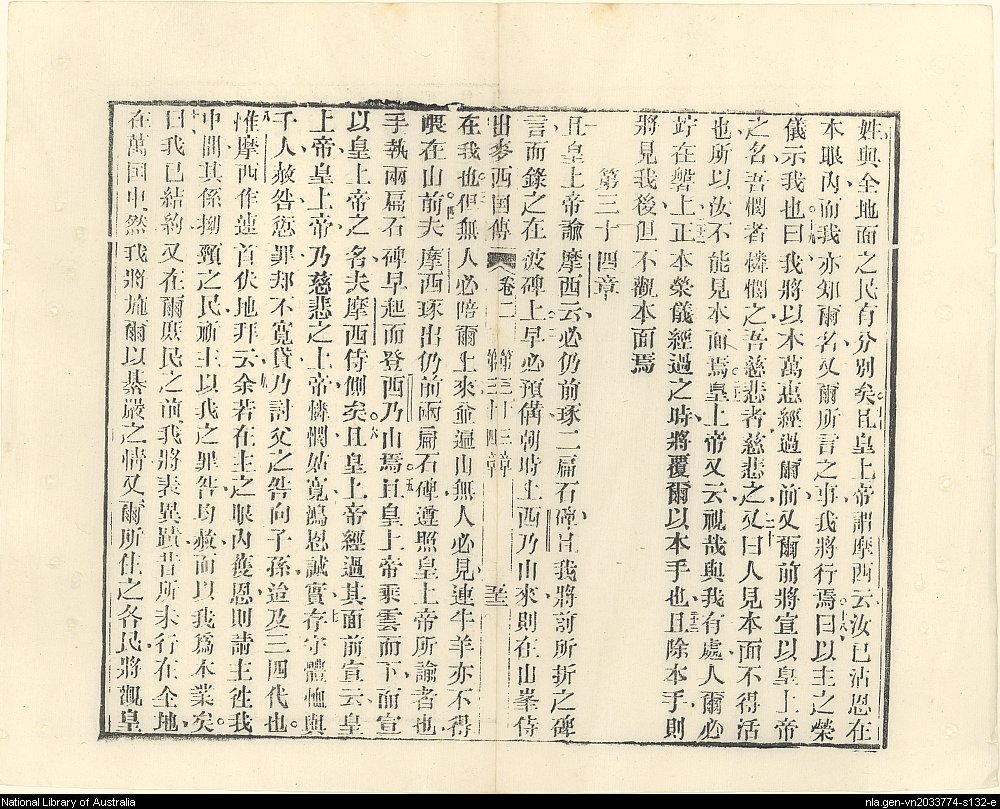 姓與全地面之民有分別矣。十七且皇上帝謂摩西云汝已沾恩在
本眼內而我亦知爾名又爾所言之事我將行焉。十八曰以主之榮
儀示我也。十九曰我將以本萬惠經過爾前又爾前將宣以皇上帝
之名吾憫者憐憫之吾慈悲者慈悲之。二十又曰人見本面不得活
也所以汝不能見本面焉。二十一皇上帝又云視哉與我有處人爾必
竚在磐上。二十二正本榮儀經過之時將覆爾以本手也。二十三且除本手則
將見我後但不觀本面焉
第三十四章
一且皇上帝諭摩西云必仍前琢二扁石碑且我將前所折之碑
言而錄之在彼碑上。二早必預備朝時上西乃山來則在山峯侍
出麥西國傳 卷二 第三十三章 第三十四章
在我也。三但無人必陪爾上來並遍山無人必見連牛羊亦不得
喂在山前。四夫摩西琢出仍前兩扁石碑遵照皇上帝所諭者也
手執兩扁石碑早起而登西乃山焉。五且皇上帝乘雲而下而宣
以皇上帝之名夫摩西侍側矣。六且皇上帝經過其面前宣云皇
上帝皇上帝乃慈悲之上帝憐憫姑寬鴻恩誠實。七存守體恤與
千人赦咎愆罪却不寬貸乃討父之咎向子孫造及三四代也。八
惟摩西作速首伏地拜。九云余若在主之眼內獲恩則請主徃我
中間其係拗頸之民祈主以我之罪咎均赦而以我爲本業矣。十
曰我已結約又在爾庶民之前我將表異蹟昔所未行在全地
在萬國中然我將施爾以綦嚴之情又爾所住之各民將觀皇
National Library of Australia
nla.gen-vn2033774-s132-e